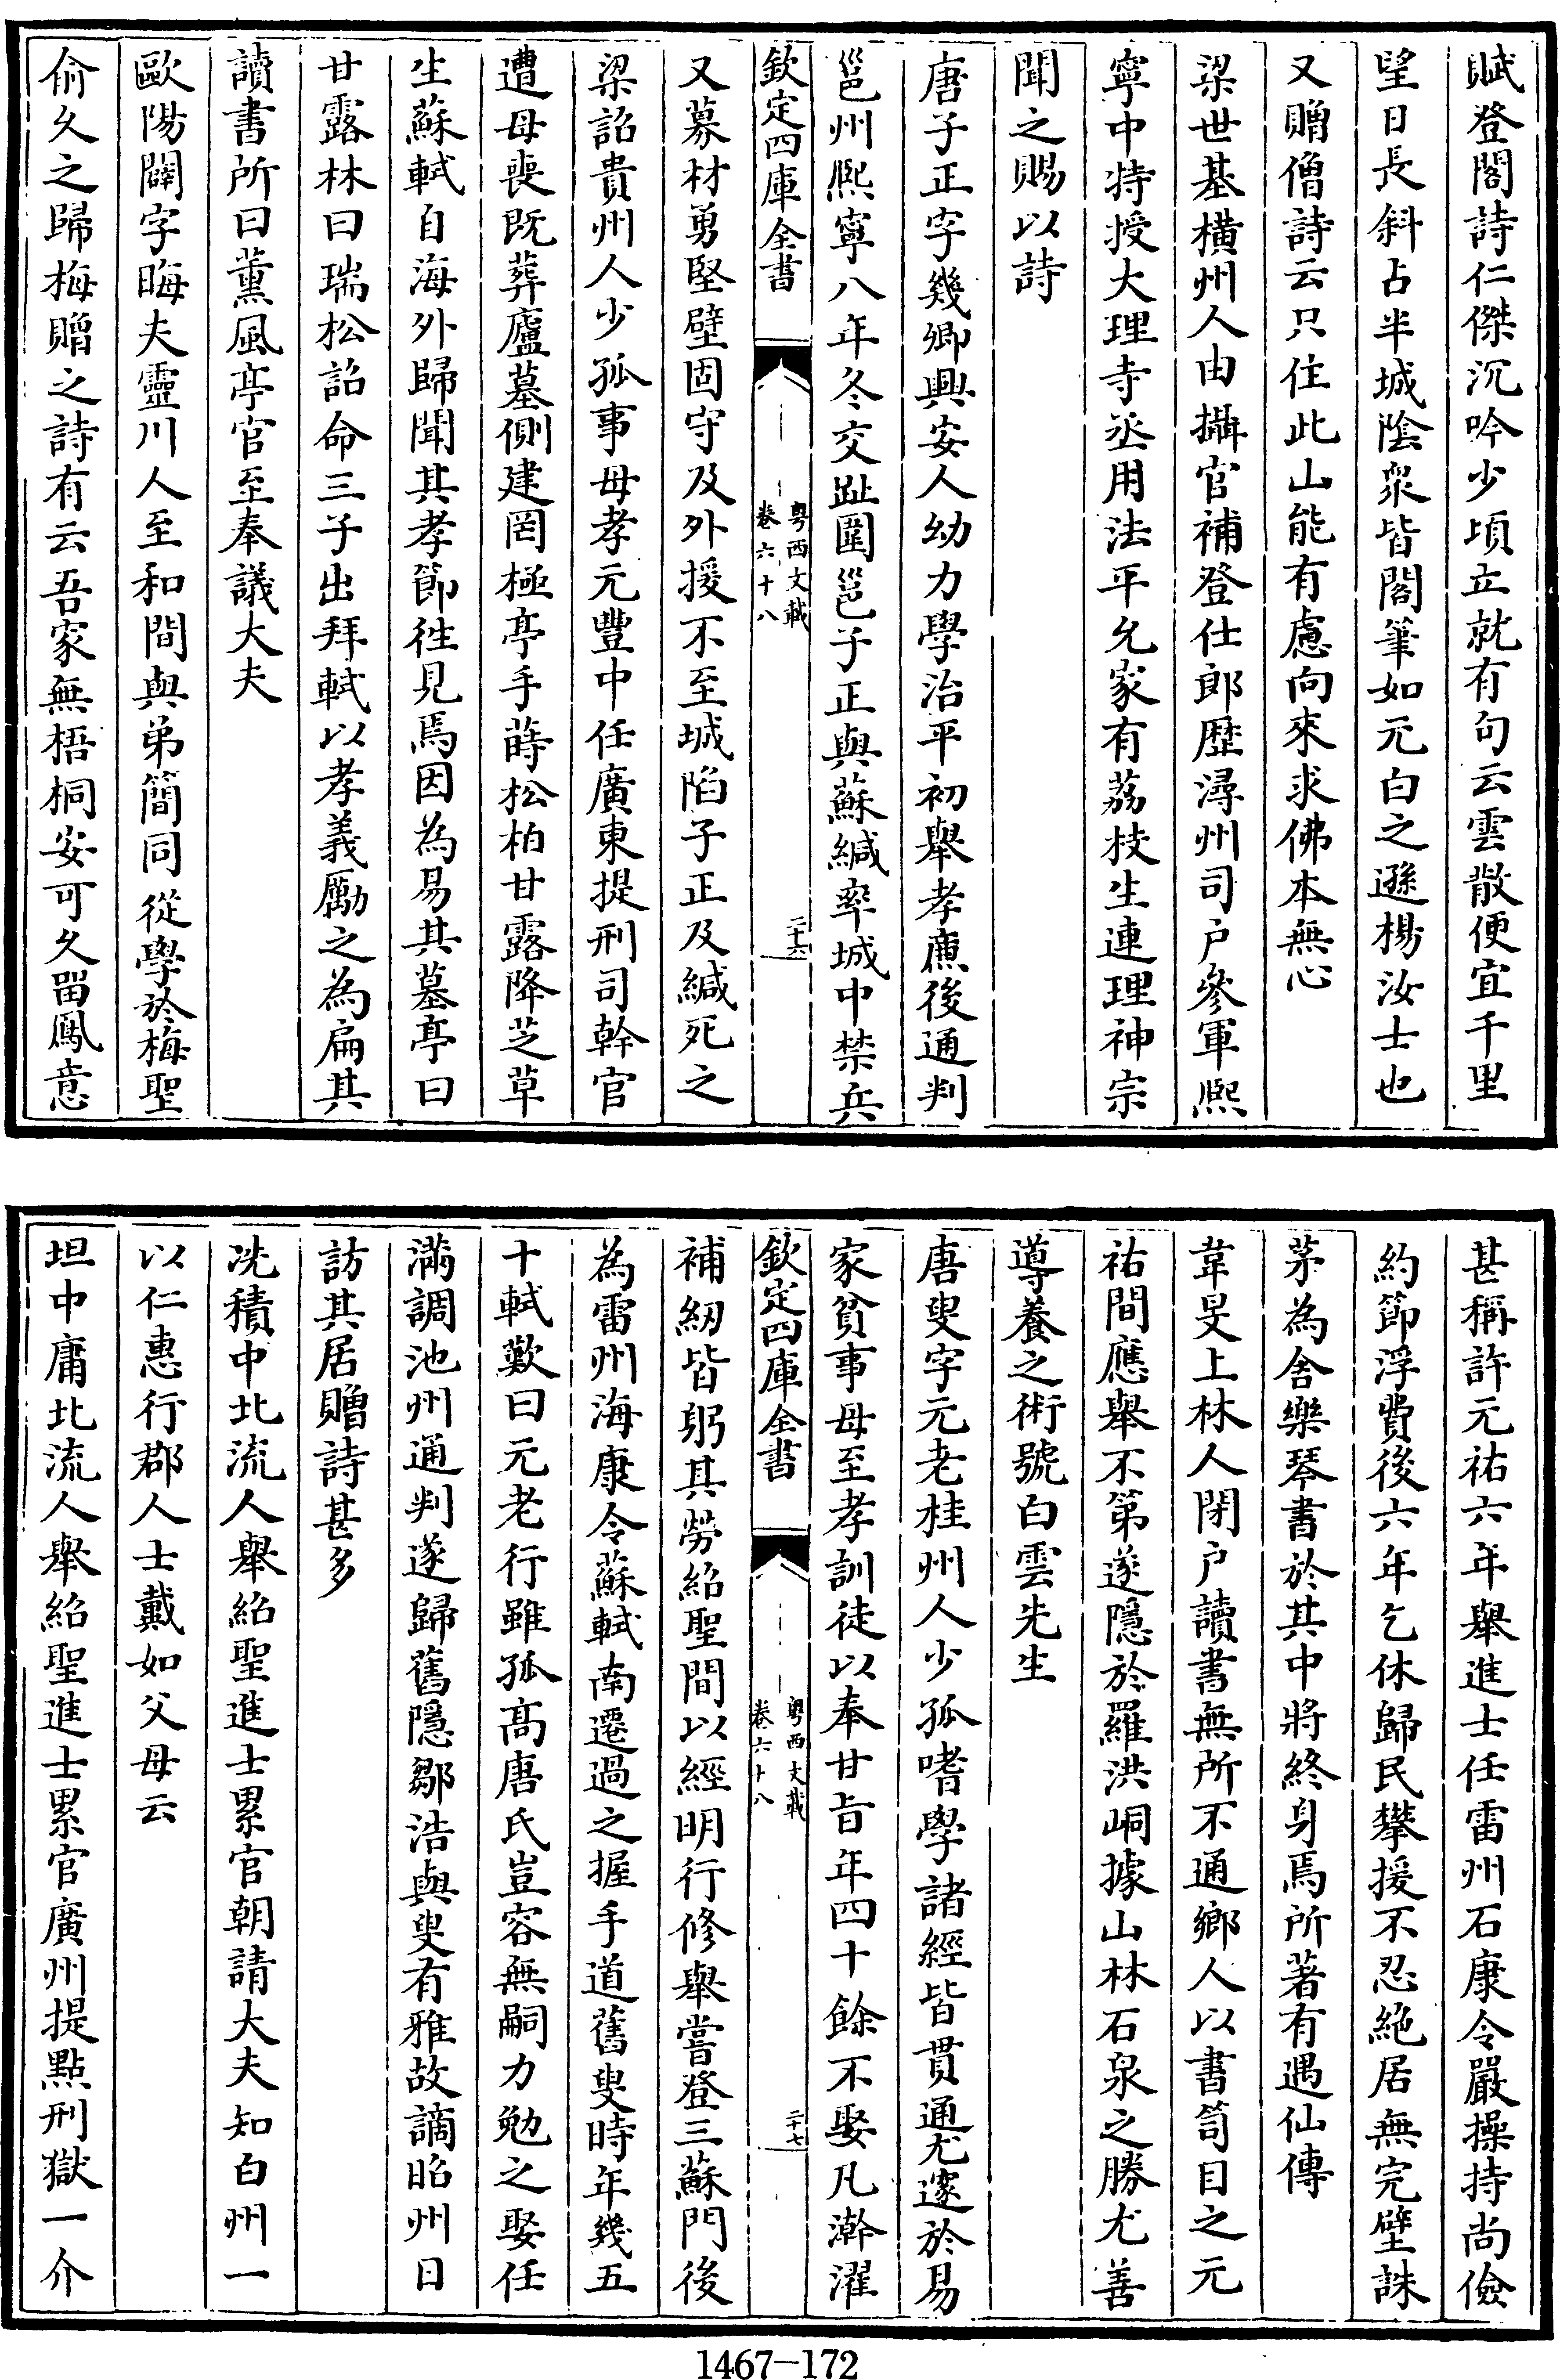 賦登閣詩仁傑沉吟少頃立就有句云雲散便宜千里
望日長斜占半城陰衆皆閣筆如元白之遜楊汝士也
又贈僧詩云只住此山能有慮向來求佛本無心
梁世基橫州人由攝官補登仕郎歴潯州司户參軍熙
寧中特授大理寺丞用法平允家有荔枝生連理神宗
聞之賜以詩
唐子正字幾卿興安人幼力學治平初舉孝廉後通判
邕州熙寧八年冬交趾圍邕子正與蘇緘率城中禁兵
欽定四庫全書
粤西文載
卷六十八
二十六
又募材勇堅壁固守及外援不至城陷子正及緘死之
梁詔貴州人少孤事母孝元豐中任廣東提刑司幹官
遭母喪既葬廬墓側建罔極亭手蒔松柏甘露降芝草
生蘇軾自海外歸聞其孝節徃見焉因為易其墓亭曰
甘露林曰瑞松詔命三子出拜軾以孝義勵之為扁其
讀書所曰薰風亭官至奉議大夫
歐陽闢字晦夫靈川人至和間與弟簡同從學於梅聖
俞久之歸梅贈之詩有云吾家無梧桐安可久留鳳意
甚稱許元祐六年舉進士任雷州石康令嚴操持尚儉
約節浮費後六年乞休歸民攀援不忍絶居無完壁誅
茅為舍樂琴書於其中將終身焉所著有遇仙傳
韋旻上林人閉户讀書無所不通鄉人以書笥目之元
祐間應舉不第遂隱於羅洪峒據山林石泉之勝尤善
導養之術號白雲先生
唐叟字元老桂州人少孤嗜學諸經皆貫通尤邃於易
家貧事母至孝訓徒以奉甘旨年四十餘不娶凡澣濯
欽定四庫全書
粤西文載
卷六十八
二十七
補紉皆躬其勞紹聖間以經明行修舉嘗登三蘇門後
為雷州海康令蘇軾南遷過之握手道舊叟時年幾五
十軾歎曰元老行雖孤高唐氏豈容無嗣力勉之娶任
滿調池州通判遂歸舊隱鄒浩與叟有雅故謫昭州日
訪其居贈詩甚多
冼積中北流人舉紹聖進士累官朝請大夫知白州一
以仁惠行郡人士戴如父母云
坦中庸北流人舉紹聖進士累官廣州提點刑獄一介
1467-172